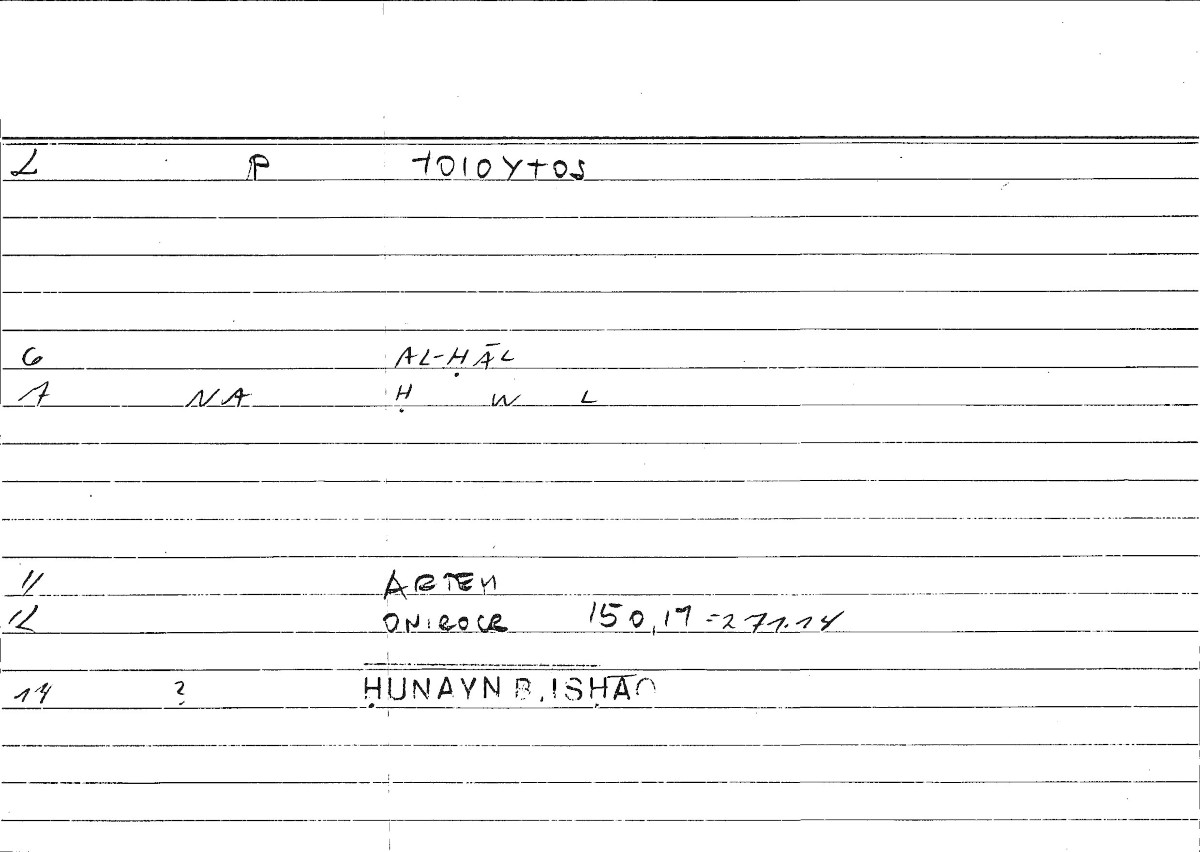 2 P TOIOYTOS
6 AL-ḤĀL
7 NA Ḥ W L
11 ARTEM
12 ONIROCR 150,17=271.14
14 ? ḤUNAYN B. ISḤĀQ